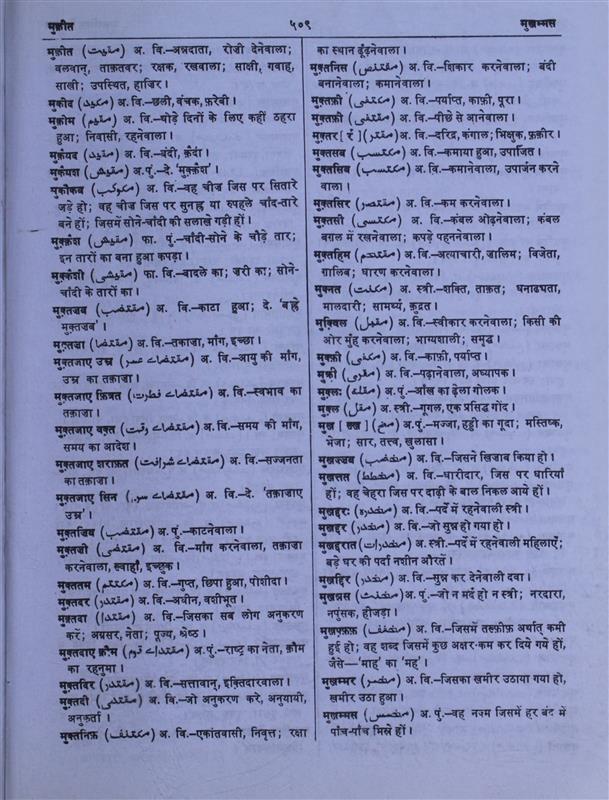 मुक़ीत ५०९ मुखम्मस
मुक़ीत (مقیت) अ. वि.–अन्नदाता, रोज़ी देनेवाला;
बलवान्, ताक़तवर; रक्षक, रखवाला; साक्षी, गवाह,
साखी; उपस्थित, हाज़िर।
मुकीद (مکید) अ. वि.–छली, वंचक, फ़रेबी।
मुक़ीम (مقیم) अ. वि.–थोड़े दिनों के लिए कहीं ठहरा
हुआ; निवासी, रहनेवाला।
मुक़ैयद (مقید) अ. वि.–बंदी, क़ैदी।
मुक़ैयश (مقیش) अ. पुं.–दे. 'मुक़्क़ैश'।
मुकौकब (مکوکب) अ. वि.–वह चीज़ जिस पर सितारे
जड़े हों; वह चीज़ जिस पर सुनह्र या रुपहले चाँद-तारे
बने हों; जिसमें सोने-चाँदी की सलाखें गड़ी हों।
मुक़्क़ैश (مقیش) फा. पुं.–चाँदी-सोने के चौड़े तार;
इन तारों का बना हुआ कपड़ा।
मुक़्क़ैशी (مقیشی) फा. वि.–बादले का; ज़री का; सोने-
चाँदी के तारों का।
मुक़्तज़ब (مقتضب) अ. वि.–काटा हुआ; दे. 'बह्रे
मुक़्तज़ब'।
मुक़्तज़ा (مقتضا) अ. वि.–तक़ाज़ा, माँग, इच्छा।
मुक़्तज़ाए उम्र (مقتضاے عمر) अ. वि.–आयु की माँग,
उम्र का तक़ाज़ा।
मुक़्तज़ाए फ़ित्रत (مقتضاے فطرت) अ. वि.–स्वभाव का
तक़ाज़ा।
मुक़्तज़ाए वक़्त (مقتضاے وقت) अ. वि.–समय की माँग,
समय का आदेश।
मुक़्तज़ाए शराफ़त (مقتضاے شرافت) अ. वि.–सज्जनता
का तक़ाज़ा।
मुक़्तज़ाए सिन (مقتضاے سن) अ. वि.–दे. 'तक़ाज़ाए
उम्र'।
मुक़्तज़िब (مقتضب) अ. पुं.–काटनेवाला।
मुक़्तज़ी (مقتضی) अ. वि.–माँग करनेवाला, तक़ाज़ा
करनेवाला, स्वाहाँ, इच्छुक।
मुक्ततम (مکتتم) अ. वि.–गुप्त, छिपा हुआ, पोशीदा।
मुक़्तदर (مقتدر) अ. वि.–अधीन, वशीभूत।
मुक़्तदा (مقتدا) अ. वि.–जिसका सब लोग अनुकरण
करें; अग्रसर, नेता; पूज्य, श्रेष्ठ।
मुक़्तदाए क़ौम (مقتداے قوم) अ. पुं.–राष्ट्र का नेता, क़ौम
का रहनुमा।
मुक़्तदिर (مقتدر) अ. वि.–सत्तावान्, इक़्तिदारवाला।
मुक़्तदी (مقتدی) अ. वि.–जो अनुकरण करे, अनुयायी,
अनुकर्ता।
मुक्तनिफ़ (مکتنف) अ. वि.–एकांतवासी, निवृत्त; रक्षा
का स्थान ढूँढ़नेवाला।
मुक़्तनिस (مقتنص) अ. वि.–शिकार करनेवाला; बंदी
बनानेवाला; कमानेवाला।
मुक्तफ़ी (مکتفی) अ. वि.–पर्याप्त, काफ़ी, पूरा।
मुक़्तफ़ी (مقتفی) अ. वि.–पीछे से आनेवाला।
मुक़्तर [ र्र ] (مقتر) अ. वि.–दरिद्र, कंगाल; भिक्षुक, फ़क़ीर।
मुक्तसब (مکتسب) अ. वि.–कमाया हुआ, उपार्जित।
मुक्तसिब (مکتسب) अ. वि.–कमानेवाला, उपार्जन करने
वाला।
मुक़्तसिर (مقتصر) अ. वि.–कम करनेवाला।
मुक्तसी (مکتسی) अ. वि.–कंबल ओढ़नेवाला; कंबल
बग़ल में रखनेवाला; कपड़े पहननेवाला।
मुक़्तहिम (مقتحم) अ. वि.–अत्याचारी, ज़ालिम; विजेता,
ग़ालिब; धारण करनेवाला।
मुक्नत (مکنت) अ. स्त्री.–शक्ति, ताक़त; धनाढ्यता,
मालदारी; सामर्थ्य, क़ुद्रत।
मुक़्बिल (مقبل) अ. वि.–स्वीकार करनेवाला; किसी की
ओर मुँह करनेवाला; भाग्यशाली; समृद्ध।
मुक्फ़ी (مکفی) अ. वि.–काफ़ी, पर्याप्त।
मुक़्री (مقری) अ. वि.–पढ़ानेवाला, अध्यापक।
मुक़्लः (مقلہ) अ. पुं.–आँख का ढेला गोलक।
मुक़्ल (مقل) अ. स्त्री.–गूगल, एक प्रसिद्ध गोंद।
मुख [ ख्ख ] (مخ) अ. पुं.–मज्जा, हड्डी का गूदा; मस्तिष्क,
भेजा; सार, तत्त्व, खुलासा।
मुखज़्ज़ब (مخضب) अ. वि.–जिसने खिज़ाब किया हो।
मुखत्तत (مخطط) अ. वि.–धारीदार, जिस पर धारियाँ
हों; वह चेहरा जिस पर दाढ़ी के बाल निकल आये हों।
मुखद्दरः (مخدرہ) अ. वि.–पर्दे में रहनेवाली स्त्री।
मुखद्दर (مخدر) अ. वि.–जो सुन्न हो गया हो।
मुखद्दरात (مخدرات) अ. स्त्री.–पर्दे में रहनेवाली महिलाएँ;
बड़े घर की पर्दानशीन औरतें।
मुखद्दिर (مخدر) अ. वि.–सुन्न कर देनेवाली दवा।
मुखन्नस (مخنث) अ. पुं.–जो न मर्द हो न स्त्री; नरदारा,
नपुंसक, हीजड़ा।
मुखफ़्फ़फ़ (مخفف) अ. वि.–जिसमें तख़्फ़ीफ़ अर्थात् कमी
हुई हो; वह शब्द जिसमें कुछ अक्षर-कम कर दिये गये हों,
जैसे–'माह' का 'मह'।
मुखम्मर (مخمر) अ. वि.–जिसका खमीर उठाया गया हो,
खमीर उठा हुआ।
मुखम्मस (مخمس) अ. पुं.–वह नज़्म जिसमें हर बंद में
पाँच-पाँच मिस्रे हों।